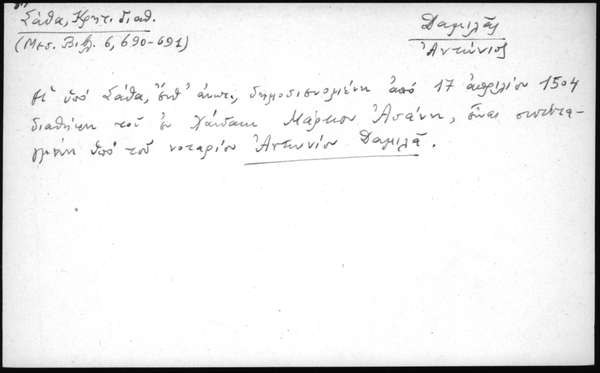 Σάθα, Κρητ. διαθ.
(Μεσ. Βιβλ. 6, 690-691)
Δαμιλᾶς
Ἀντώνιος
Ἡ ὑπό Σάθα, ἔνθ' ἀνωτ., δημοσιευομένη ἀπό 17 ἀπριλίου 1504
διαθήκη τοῦ ἐν Χάνδακι Μάρκου Ἀσάνη, εἶναι συντετα-
γμένη ὑπό τοῦ νοταρίου Ἀντωνίου Δαμιλᾶ.